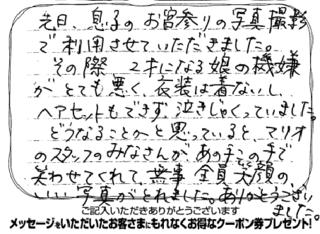 先日、息子のお宮参りの写真撮影
で利用させていただきました。
その際、2才になる娘の機嫌
がとても悪く、衣装は着ないし、
ヘアセットもできず、泣きじゃくっていました。
どうなることかと思っていると、マリオ
のスタッフのみなさんが、あの手この手で
笑わせてくれて、無事全員笑顔の
いい写真がとれました。ありがとうござい
ました。
ご記入いただきありがとうございます
メッセージをいただいたお客さまにもれなくお得なクーポン券プレゼント!